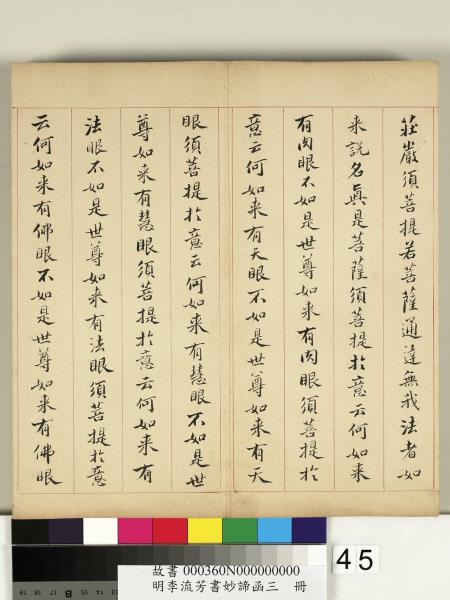 莊嚴須菩提若菩薩通達無我法者如
来說名真是菩薩須菩提扵意云何如来
有肉眼不如是世尊如来有肉眼須菩提扵
意云何如来有天眼不如是世尊如来有天
眼須菩提扵意云何如来有慧眼不如是世
尊如来有慧眼須菩提扵意云何如来有
法眼不如是世尊如来有法眼須菩提扵意
云何如来有佛眼不如是世尊如来有佛眼
45
故書 000360N000000000
明李流芳書妙諦函三 冊